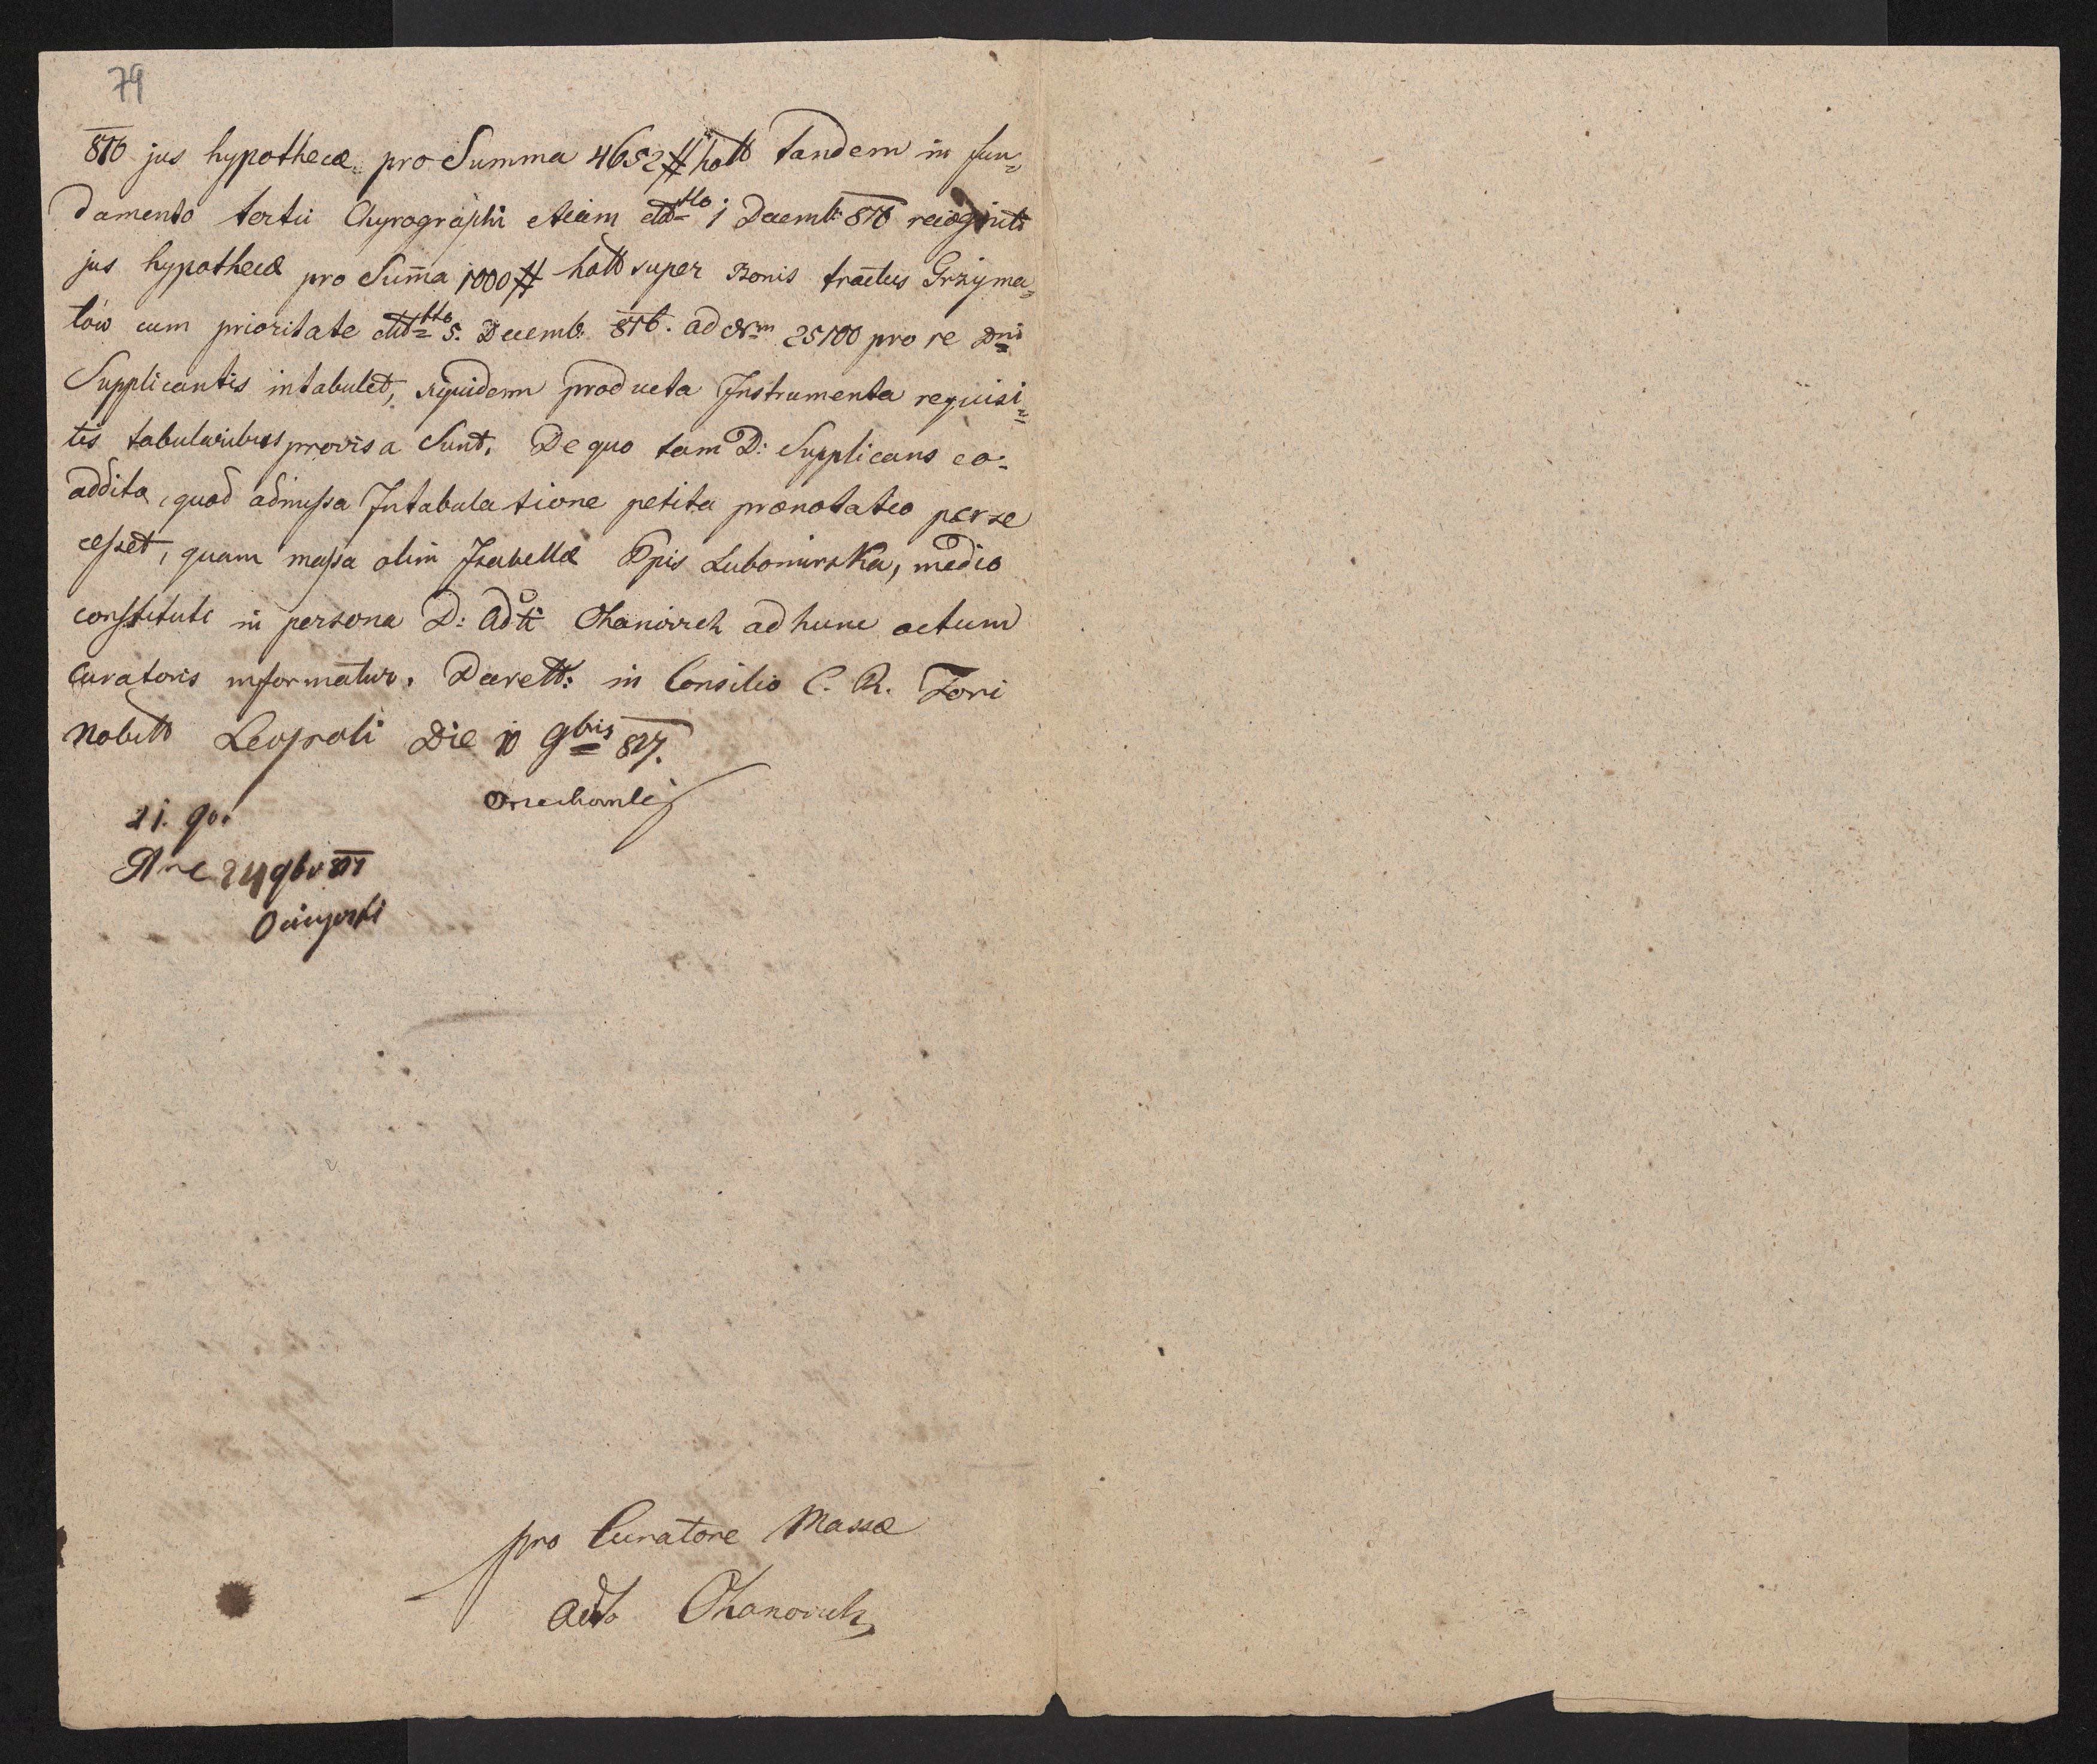 79
816 jus hypothecæ pro Summa 4652 # holl Tandem in fun=
damento tertii Chyrographi etiam ddtto 1 Decemb: 816 recogniti
jus hypothecæ pro Sum̄a 1000 # holl super Bonis tractus Grzyma=
łow cum prioritate ddtto 5. Decemb: 816. ad Nrm 25100 pro re Dni
Supplicantis intabulet, siquidem producta Instrumenta requisi=
tis tabularibus provisa Sunt. De quo tam D: Supplicans eo=
addito, quod admissa Intabulatione petita prænotatio per se
cesset, quam massa olim Isabellæ Ppis Lubomirska, medio
constituti in persona D: Adti Okanovich ad hunc actum
Curatoris informatur. Decrett: in Consilio C. R. Fori
Nobill Leopoli Die 10 9bris 817.
21. 9b.
24 9br 817
pro Curatore Massæ
Adto Okanovich